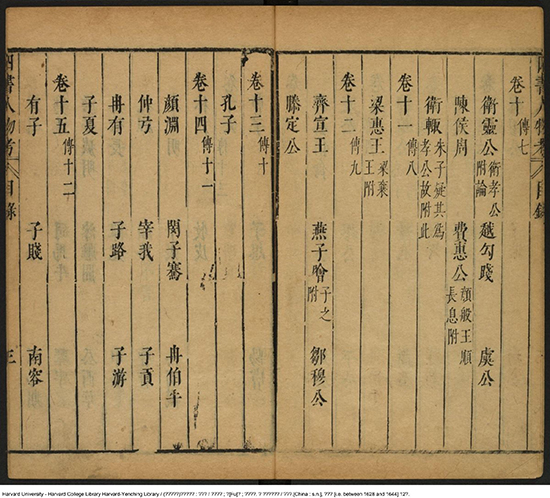 卷十 傳七
衛靈公 衛孝公附論 越勾踐 虞公
陳侯周 費惠公 顏般王順長息附
衛輒 朱子疑其為孝公故附此
卷十一 傳八
梁惠王 梁襄王附
卷十二 傳九
齊宣王 燕子噲 子之附 鄒穆公
滕定公
卷十三 傳十
孔子
卷十四 傳十一
顏淵 閔子騫 冉伯牛
仲弓 宰我 子貢
冉有 子路 子游
子夏
卷十五 傳十二
有子 子賤 南容
四書人物考 目錄 三
Harvard University - Harvard College Library Harvard-Yenching Library / (?????)????? : ??? / ???? ; ?[Fu]? ; ????. ? ?????? / ??? [China : s.n.], ??? [i.e. between 1628 and 1644] 12?.